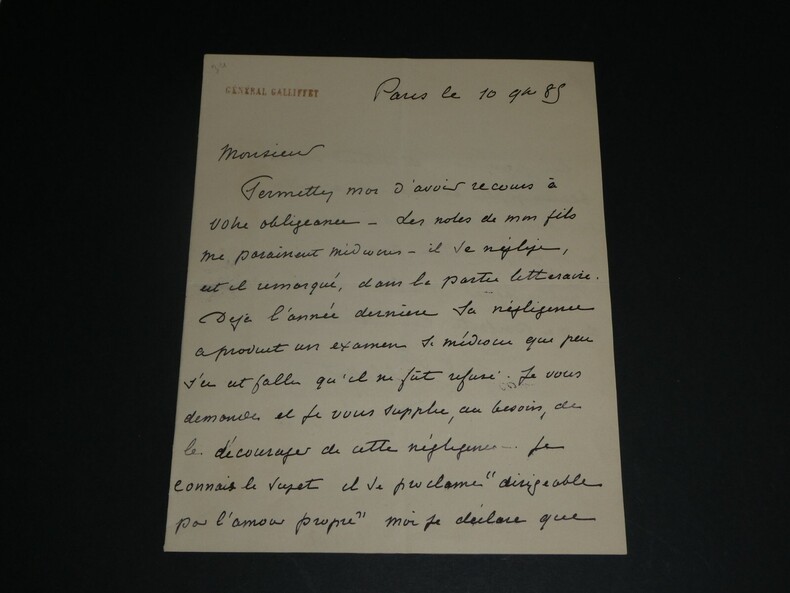 GÉNÉRAL GALLIFFET
Paris le 10 9bre 85
Monsieur
Permettez moi d'avoir recours à
votre obligeance – Les notes de mon fils
me paraissent médiocres – il se néglige,
est il remarqué, dans la partie litteraire.
Deja l'année derniere sa négligence
a produit un examen si médiocre que peu
s'en est fallu qu'il ne fût refusé. Je vous
demande et je vous supplie, au besoin, de
le décourager de cette négligence – Je
connais le sujet il se proclame "dirigeable
par l'amour propre" moi je déclare que